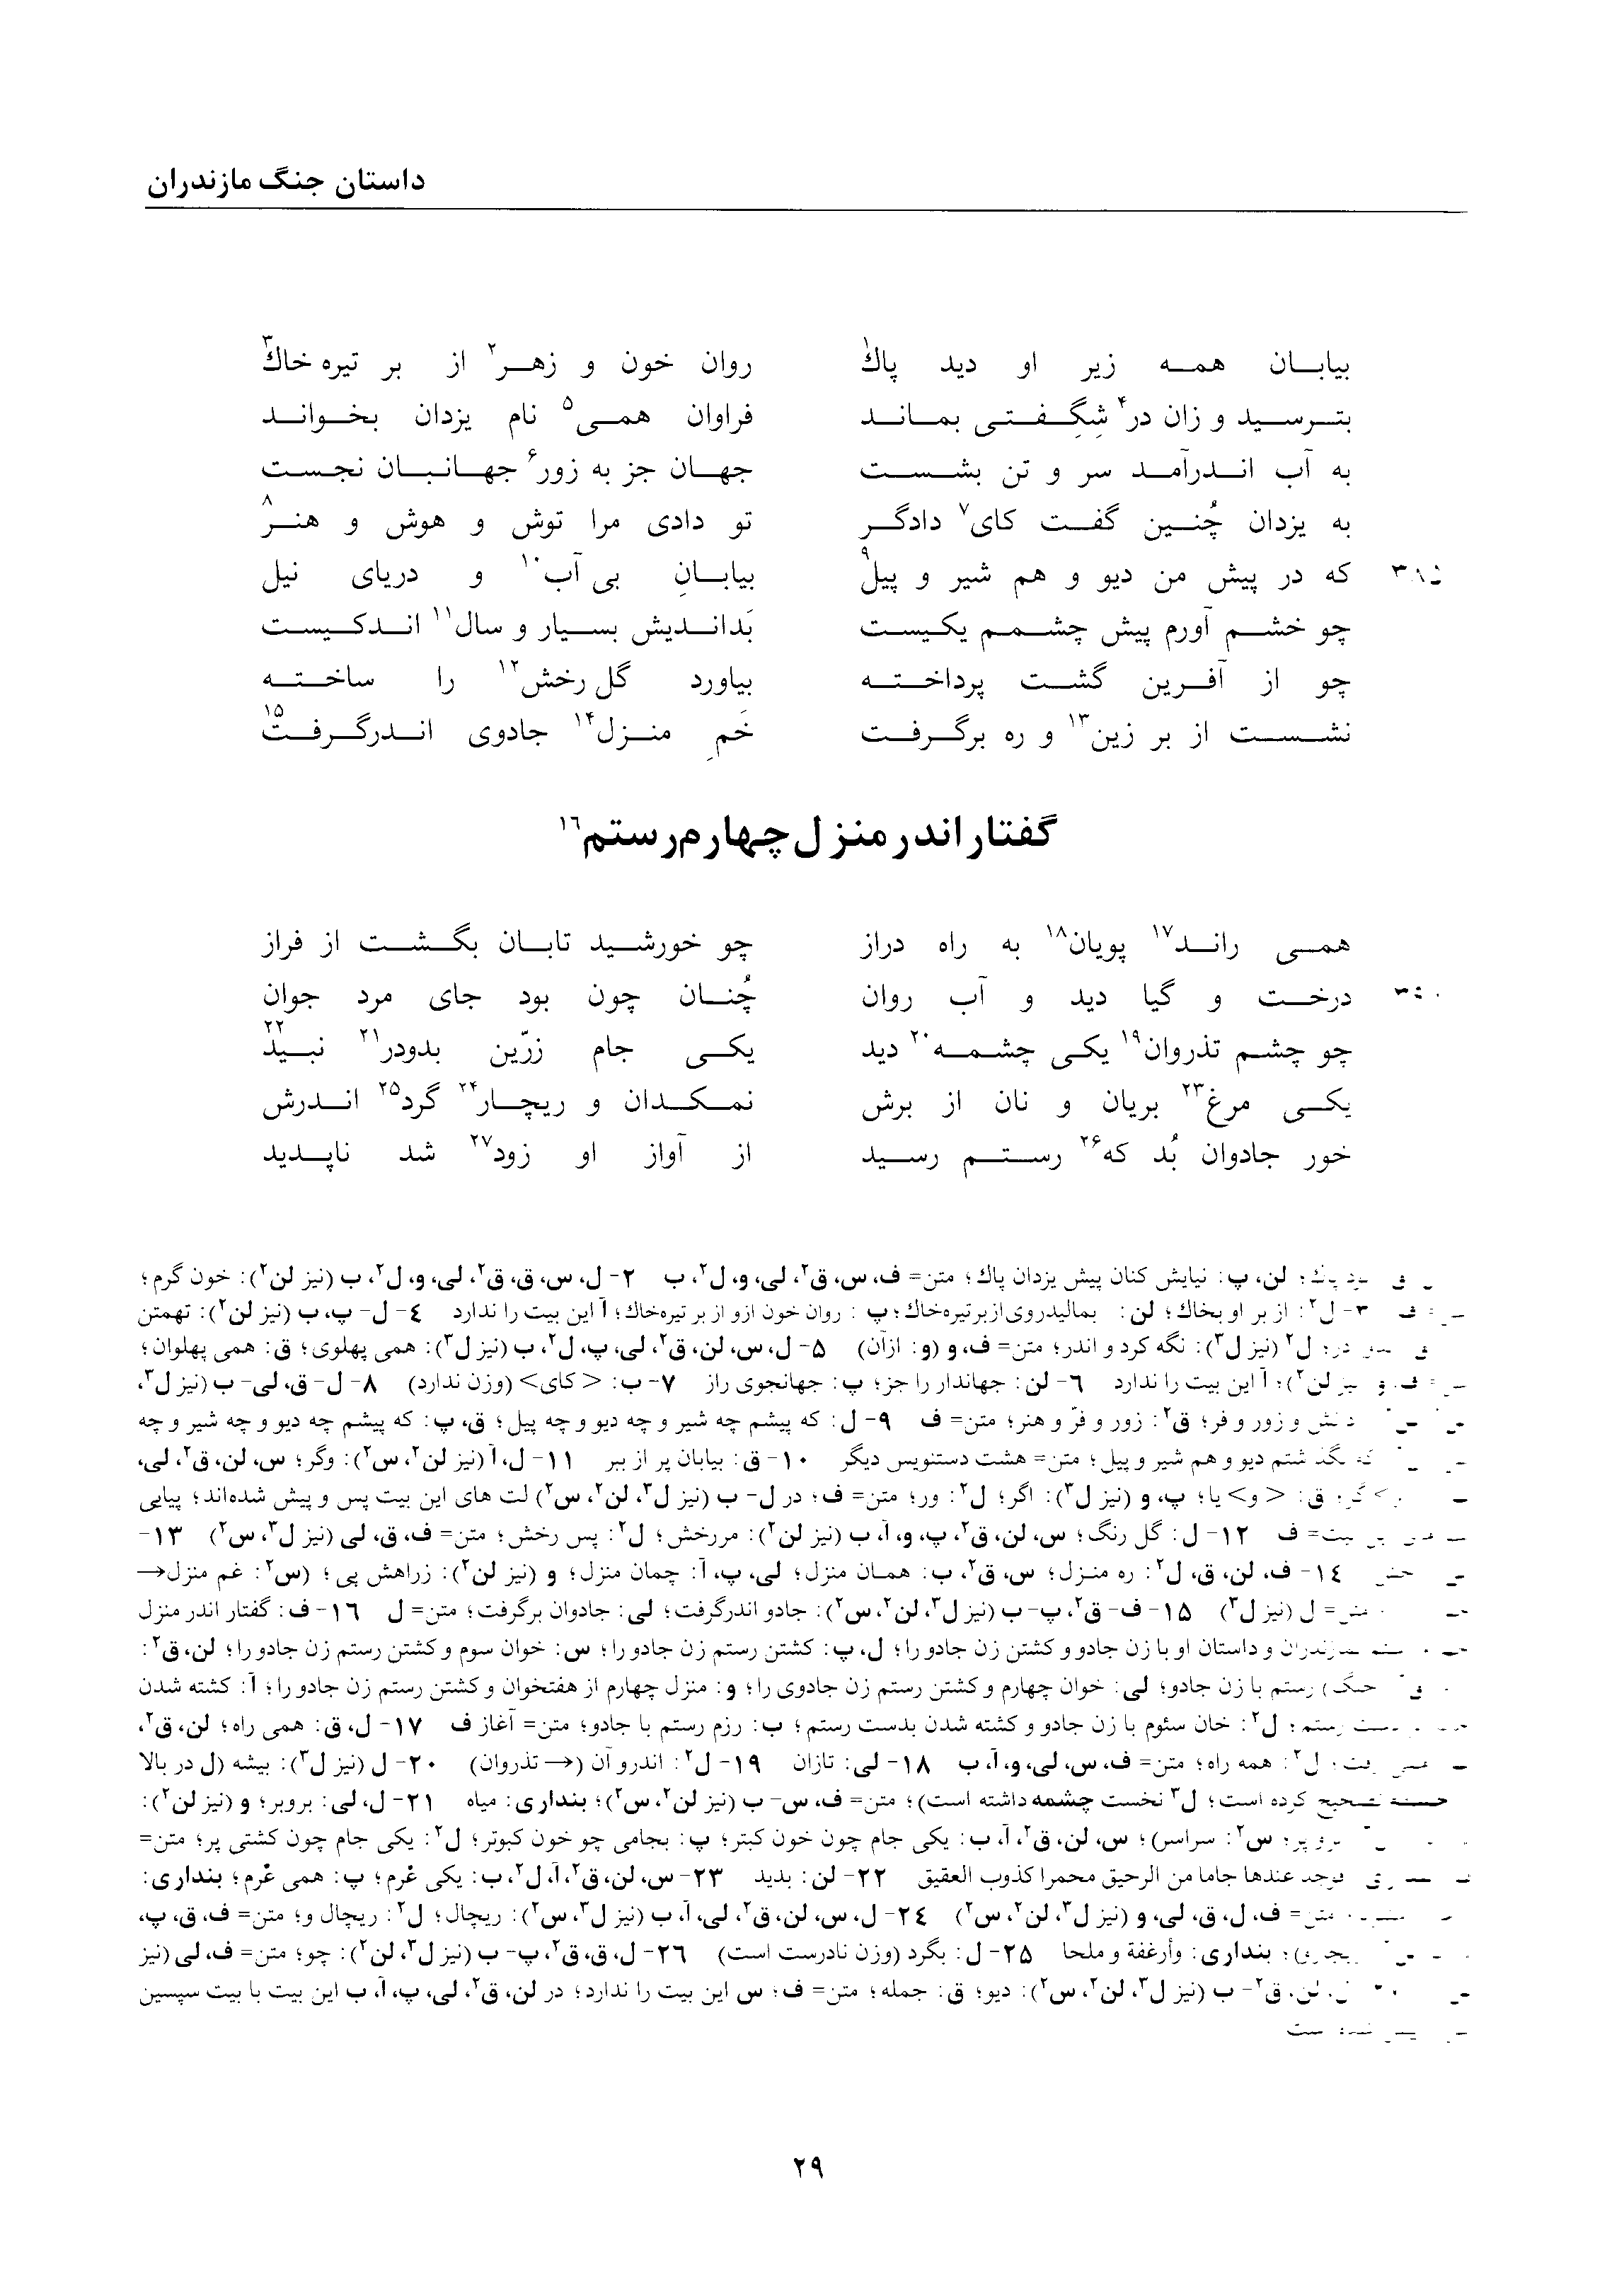 داستان جنگ مازندران
بیابان همه زیر او دید پاك۱ روان خون و زهر۲ از بر تیره خاك۳
بترسید و زان در۴ شِگِفتی بماند فراوان همی۵ نام یزدان بخواند
به آب اندرآمد سر و تن بشست جهان جز به زور۶ جهانبان نجست
به یزدان چُنین گفت کای۷ دادگر تو دادی مرا توش و هوش و هنر۸
که در پیش من دیو و هم شیر و پیل۹ بیابانِ بی آب۱۰ و دریای نیل
چو خشم آورم پیش چشمم یکیست بَداندیش بسیار و سال۱۱ اندکیست
چو از آفرین گشت پرداخته بیاورد گل رخش۱۲ را ساخته
نشست از بر زین۱۳ و ره برگرفت خَمِ منزل۱۴ جادوی اندرگرفت۱۵
گفتار اندر منزل چهارم رستم۱۶
همی راند۱۷ پویان۱۸ به راه دراز چو خورشید تابان بگشت از فراز
درخت و گیا دید و آب روان چُنان چون بود جای مرد جوان
چو چشم تذروان۱۹ یکی چشمه۲۰ دید یکی جام زرّین بدودر۲۱ نبید۲۲
یکی مرغ۲۳ بریان و نان از برش نمکدان و ریچار۲۴ گرد۲۵ اندرش
خور جادوان بُد که۲۶ رستم رسید از آواز او زود۲۷ شد ناپدید
لن، پ: نیایش کنان پیش یزدان پاك؛ متن= ف، س، ق۲، لی، و، ل۲، ب ۲- ل، س، ق، ق۲، لی، و، ل۲، ب (نیز لن۲): خون گرم؛
۳- ل۲: از بر او بخاك؛ لن: بمالیدروی ازبرتیره‌خاك؛ پ: روان خون ازو از بر تیره‌خاك؛ آ این بیت را ندارد ٤- ل- پ، ب (نیز لن۲): تهمتن
ل۲ (نیز ل۳): نگه کرد و اندر؛ متن= ف، و (و: ازآن) ۵- ل، س، لن، ق۲، لی، پ، ل۲، ب (نیز ل۳): همی پهلوی؛ ق: همی پهلوان؛
لن۲)؛ آ این بیت را ندارد ٦- لن: جهاندار را جز؛ پ: جهانجوی راز ۷- ب: <کای> (وزن ندارد) ۸- ل- ق، لی- ب (نیز ل۳،
و زور و فر؛ ق۲: زور و فرّ و هنر؛ متن= ف ۹- ل: که پیشم چه شیر و چه دیو و چه پیل؛ ق، پ: که پیشم چه دیو و چه شیر و چه
دیو و هم شیر و پیل؛ متن= هشت دستنویس دیگر ۱۰- ق: بیابان پر از ببر ۱۱- ل، آ (نیز لن۲، س۲): وگر؛ س، لن، ق۲، لی،
ق: <و> یا؛ پ، و (نیز ل۳): اگر؛ ل۲: ور؛ متن= ف؛ در ل- ب (نیز ل۳، لن۲، س۲) لت های این بیت پس و پیش شده‌اند؛ پیایی
بیت= ف ۱۲- ل: گل رنگ؛ س، لن، ق۲، پ، و، آ، ب (نیز لن۲): مررخش؛ ل۲: پس رخش؛ متن= ف، ق، لی (نیز ل۳، س۲) ۱۳-
١٤- ف، لن، ق، ل۲: ره منزل؛ س، ق۲، ب: همان منزل؛ لی، پ، آ: چمان منزل؛ و (نیز لن۲): زراهش پی؛ (س۲: غم منزل→
متن= ل (نیز ل۳) ۱۵- ف- ق۲، پ- ب (نیز ل۳، لن۲، س۲): جادو اندرگرفت؛ لی: جادوان برگرفت؛ متن= ل ١٦- ف: گفتار اندر منزل
و داستان او با زن جادو و کشتن زن جادو را؛ ل، پ: کشتن رستم زن جادو را؛ س: خوان سوم و کشتن رستم زن جادو را؛ لن، ق۲:
رستم با زن جادو؛ لی: خوان چهارم و کشتن رستم زن جادوی را؛ و: منزل چهارم از هفتخوان و کشتن رستم زن جادو را؛ آ: کشته شدن
رستم؛ ل۲: خان سئوم با زن جادو و کشته شدن بدست رستم؛ ب: رزم رستم با جادو؛ متن= آغاز ف ۱۷- ل، ق: همی راه؛ لن، ق۲،
ل۲: همه راه؛ متن= ف، س، لی، و، آ، ب ۱۸- لی: تازان ۱۹- ل۲: اندرو آن (→ تذروان) ۲۰- ل (نیز ل۳): بیشه (ل در بالا
تصحیح کرده است؛ ل۳ نخست چشمه داشته است)؛ متن= ف، س- ب (نیز لن۲، س۲)؛ بنداری: میاه ۲۱- ل، لی: بروبر؛ و (نیز لن۲):
س۲: سراسر)؛ س، لن، ق۲، آ، ب: یکی جام چون خون کبتر؛ پ: بجامی چو خون کبوتر؛ ل۲: یکی جام چون کشتی پر؛ متن=
عندها جاما من الرحیق محمرا کذوب العقیق ۲۲- لن: بدید ۲۳- س، لن، ق۲، آ، ل۲، ب: یکی غُرم؛ پ: همی غُرم؛ بنداری:
متن= ف، ل، ق، لی، و (نیز ل۳، لن۲، س۲) ۲٤- ل، س، لن، ق۲، لی، آ، ب (نیز ل۳، س۲): ریچال؛ ل۲: ریچال و؛ متن= ف، ق، پ،
بنداری: وأرغفة و ملحا ۲۵- ل: بگرد (وزن نادرست است) ۲٦- ل، ق، ق۲، پ- ب (نیز ل۳، لن۲): چو؛ متن= ف، لی (نیز
لن، ق۲- ب (نیز ل۳، لن۲، س۲): دیو؛ ق: جمله؛ متن= ف؛ س این بیت را ندارد؛ در لن، ق۲، لی، پ، آ، ب این بیت با بیت سپسین
۲۹